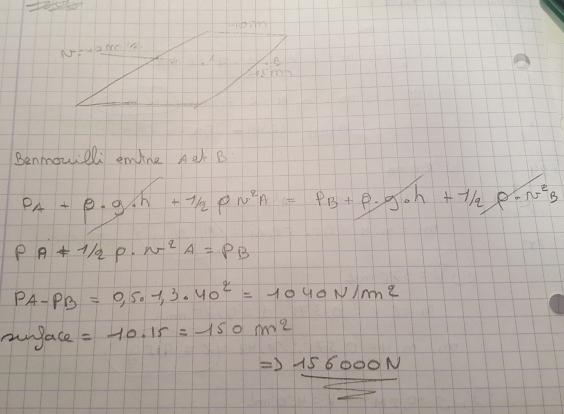 10 m
15 m
Bernnouilli entre A et B
PA + ρ.g.h + 1/2 ρ v²A = PB + ρ.g.h + 1/2 ρ.v²B
PA + 1/2 ρ.v² A = PB
PA-PB = 0,5.1,3.40² = 1040 N/m²
surface = 10.15 = 150 m²
=> 156000N